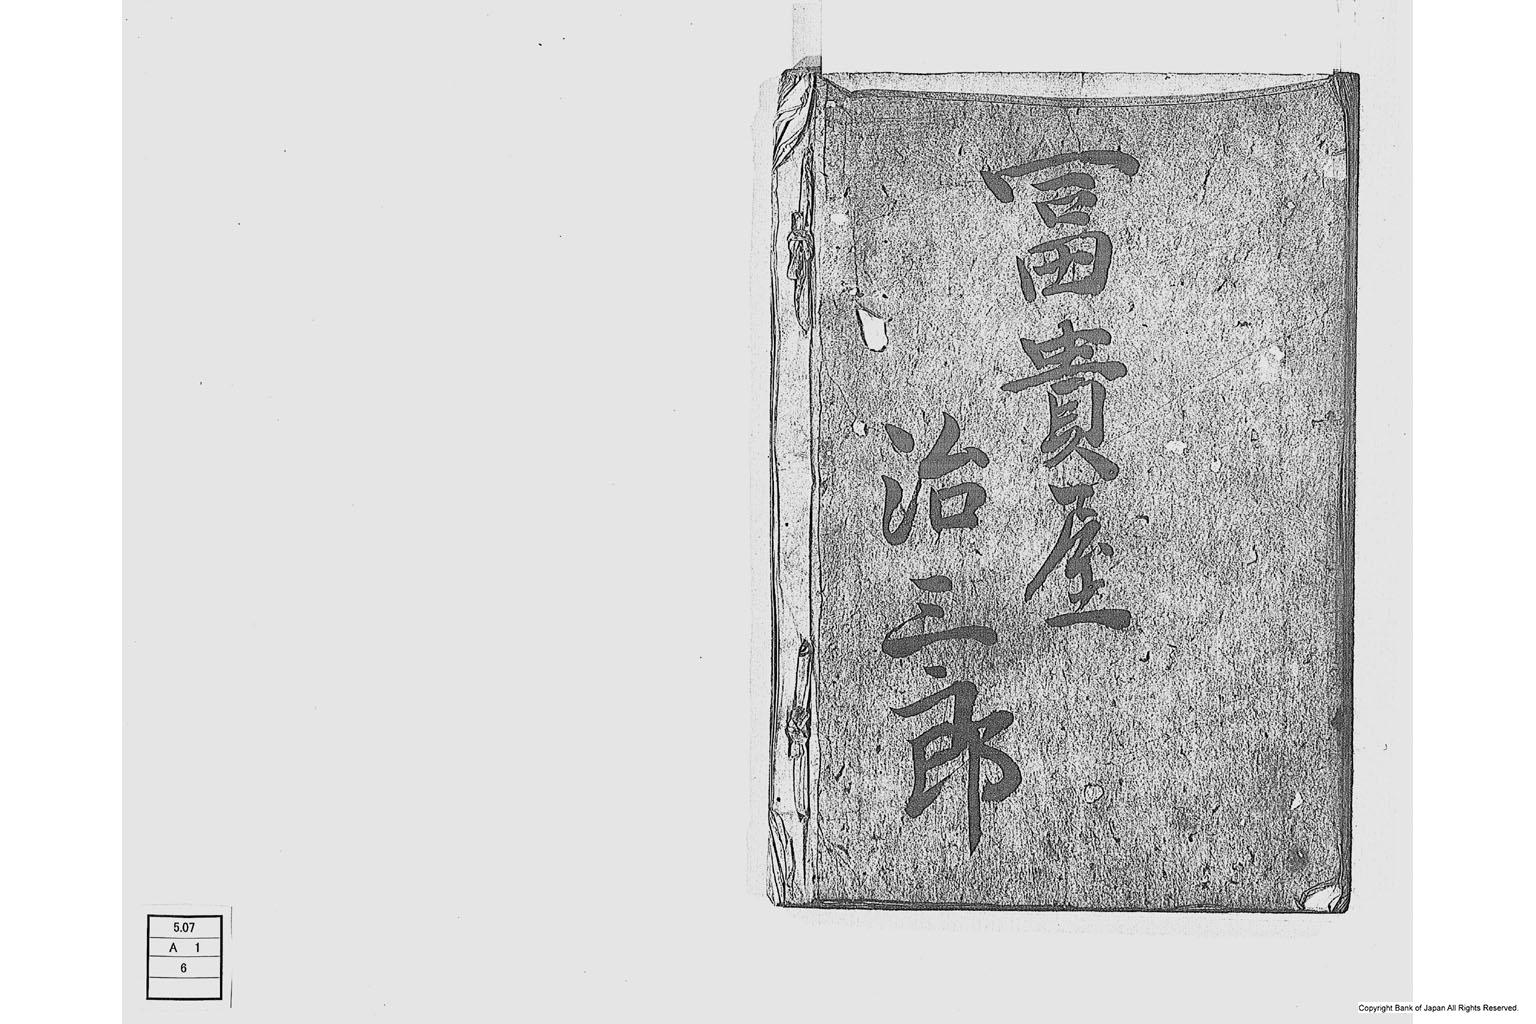 冨貴屋
治三郎
5.07
A 1
6
Copyright Bank of Japan All Rights Reserved.